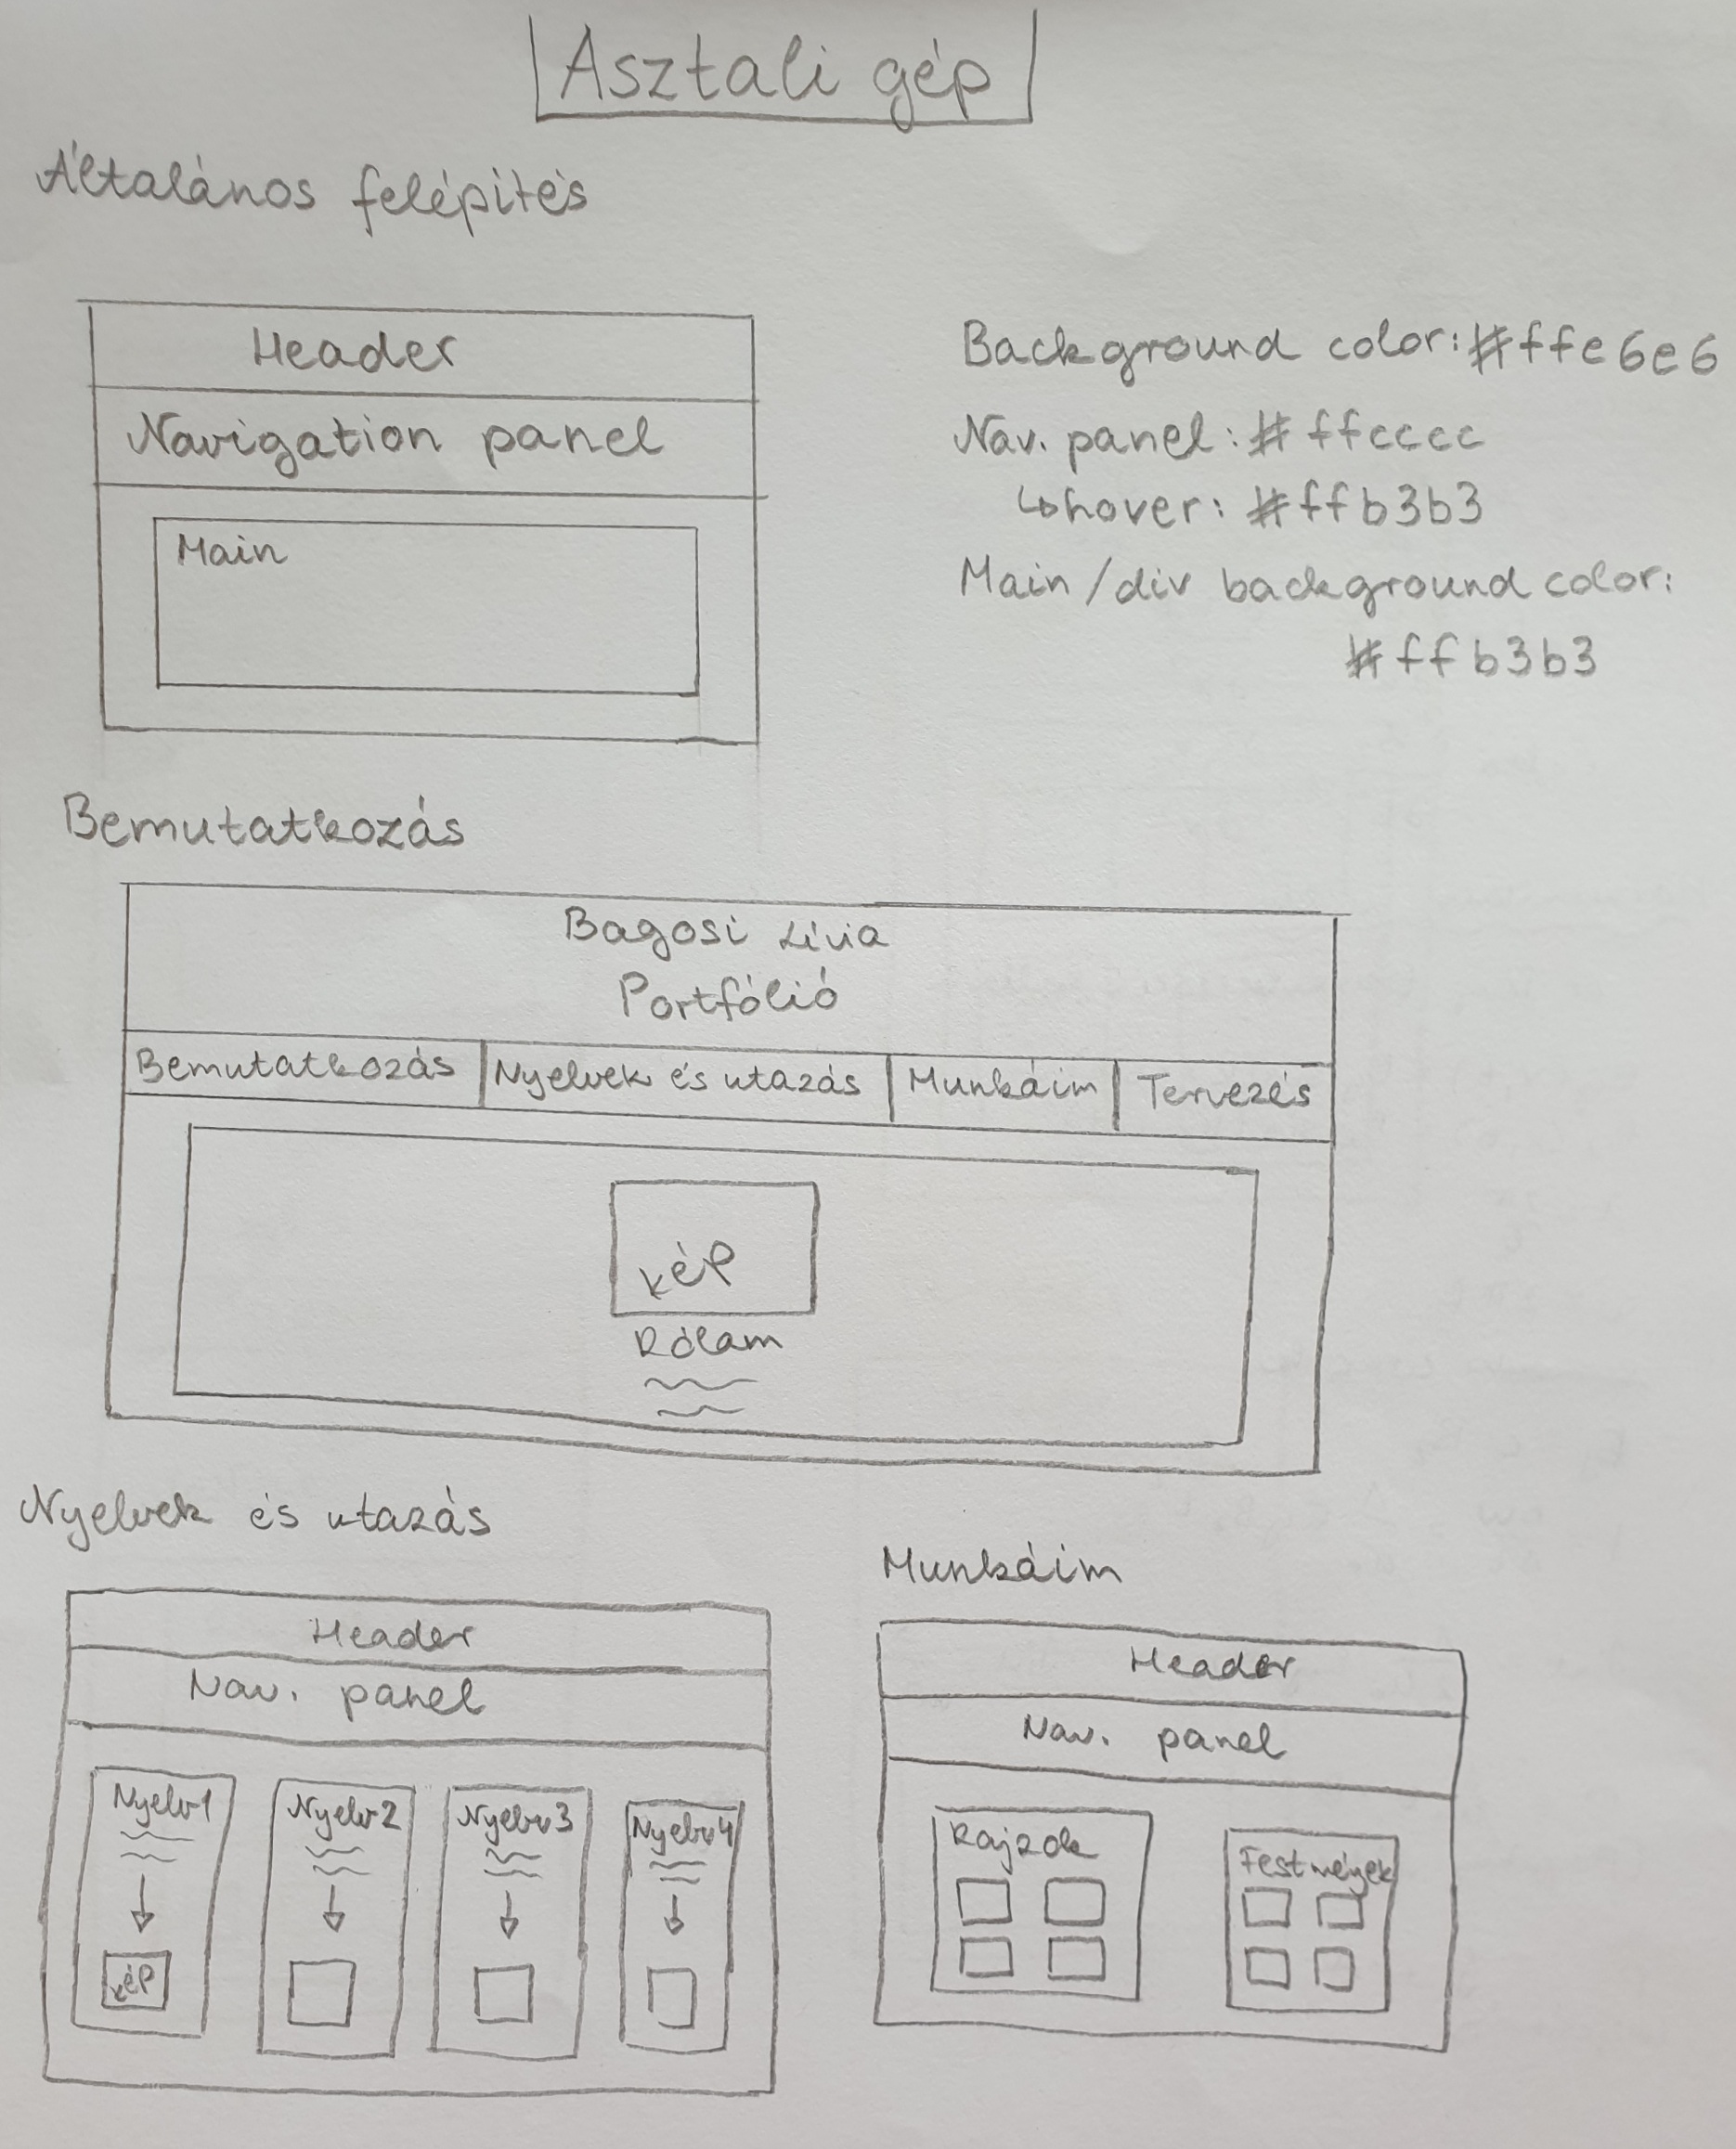 Asztali gép
Általános felépítés
Header
Navigation panel
Main
Background color: #ffe6e6
Nav. panel: #ffcccc
↳hover: #ffb3b3
Main/div background color:
#ffb3b3
Bemutatkozás
Bagosi Lívia
Portfólió
Bemutatkozás Nyelvek és utazás Munkáim Tervezés
kép
Rólam
Nyelvek és utazás
Header
Nav. panel
Nyelv1 Nyelv2 Nyelv3 Nyelv4
kép
Munkáim
Header
Nav. panel
Rajzok Festmények